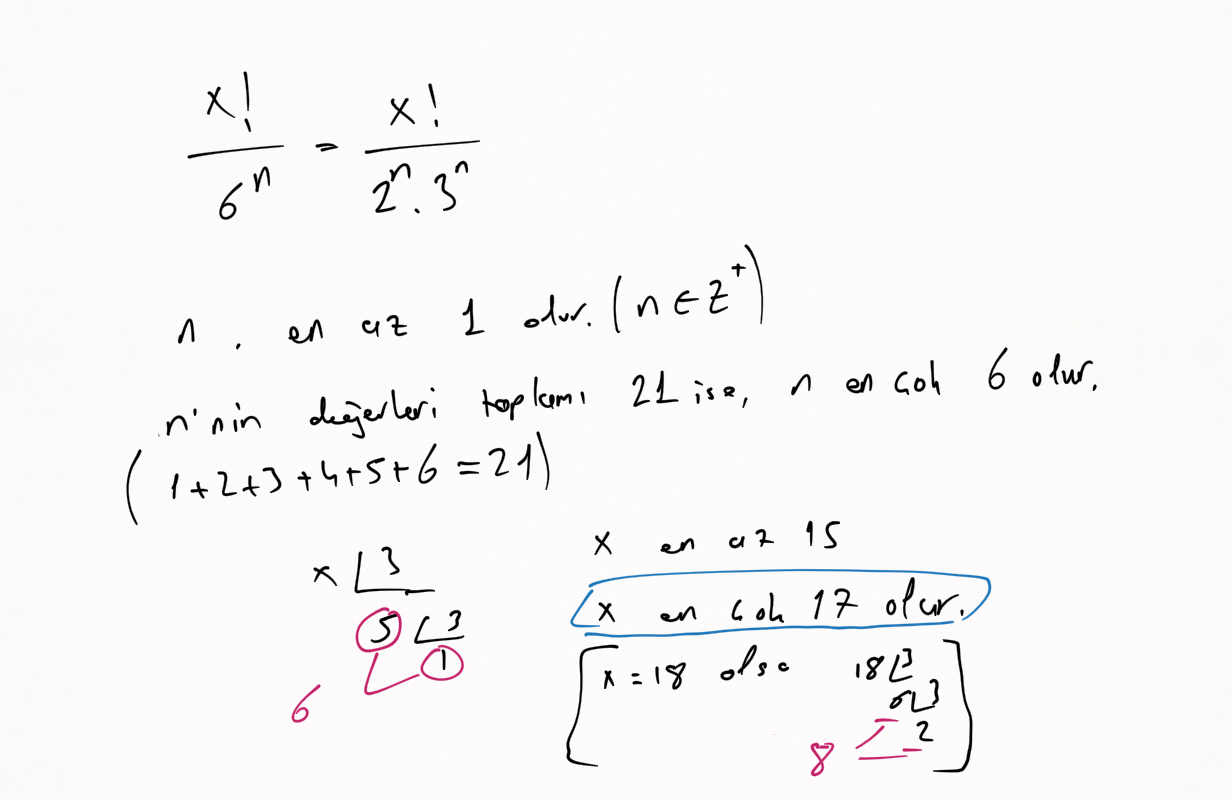 x! / 6^n = x! / 2^n . 3^n
n , en az 1 olur. (n ∈ Z⁺)
n'nin değerleri toplamı 21 ise, n en çok 6 olur.
(1+2+3+4+5+6=21)
x 3
5 3
1
6
x en az 15
x en çok 17 olur.
x = 18 olsa 18 3
6 3
2
8